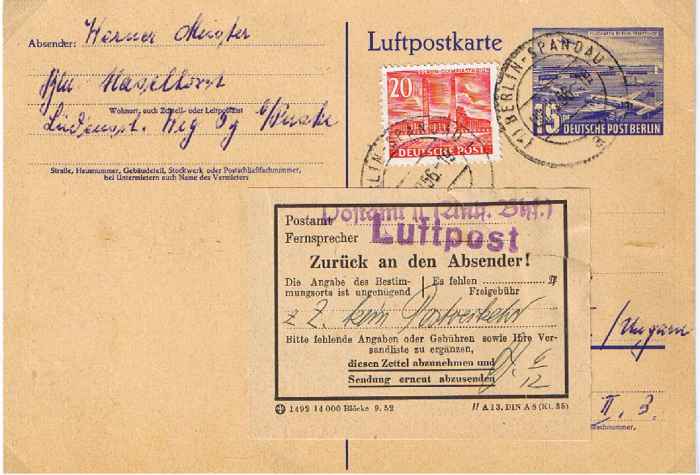 Absender: Werner
Luftpostkarte
Bln Haselhorst
Wohnort, auch Zustell- oder Leitpostamt
Weg
Straße, Hausnummer, Gebäudeteil, Stockwerk oder Postschließfachnummer,
bei Untermietern auch Name des Vermieters
20
DEUTSCHE POST
BERLIN-SPANDAU
15
DEUTSCHE POST BERLIN
Postamt II (Anh. Bhf.)
Fernsprecher Luftpost
Zurück an den Absender!
Die Angabe des Bestim-
mungsorts ist ungenügend
Es fehlen Pf
Freigebühr
z. Z. kein Postverkehr
Bitte fehlende Angaben oder Gebühren sowie Ihre Ver-
sandliste zu ergänzen,
diesen Zettel abzunehmen und
Sendung erneut abzusenden
6/12
1492 14 000 Blöcke 9. 52
A 13, DIN A 8 (Kl. 35)
/Ungarn
II. 3.